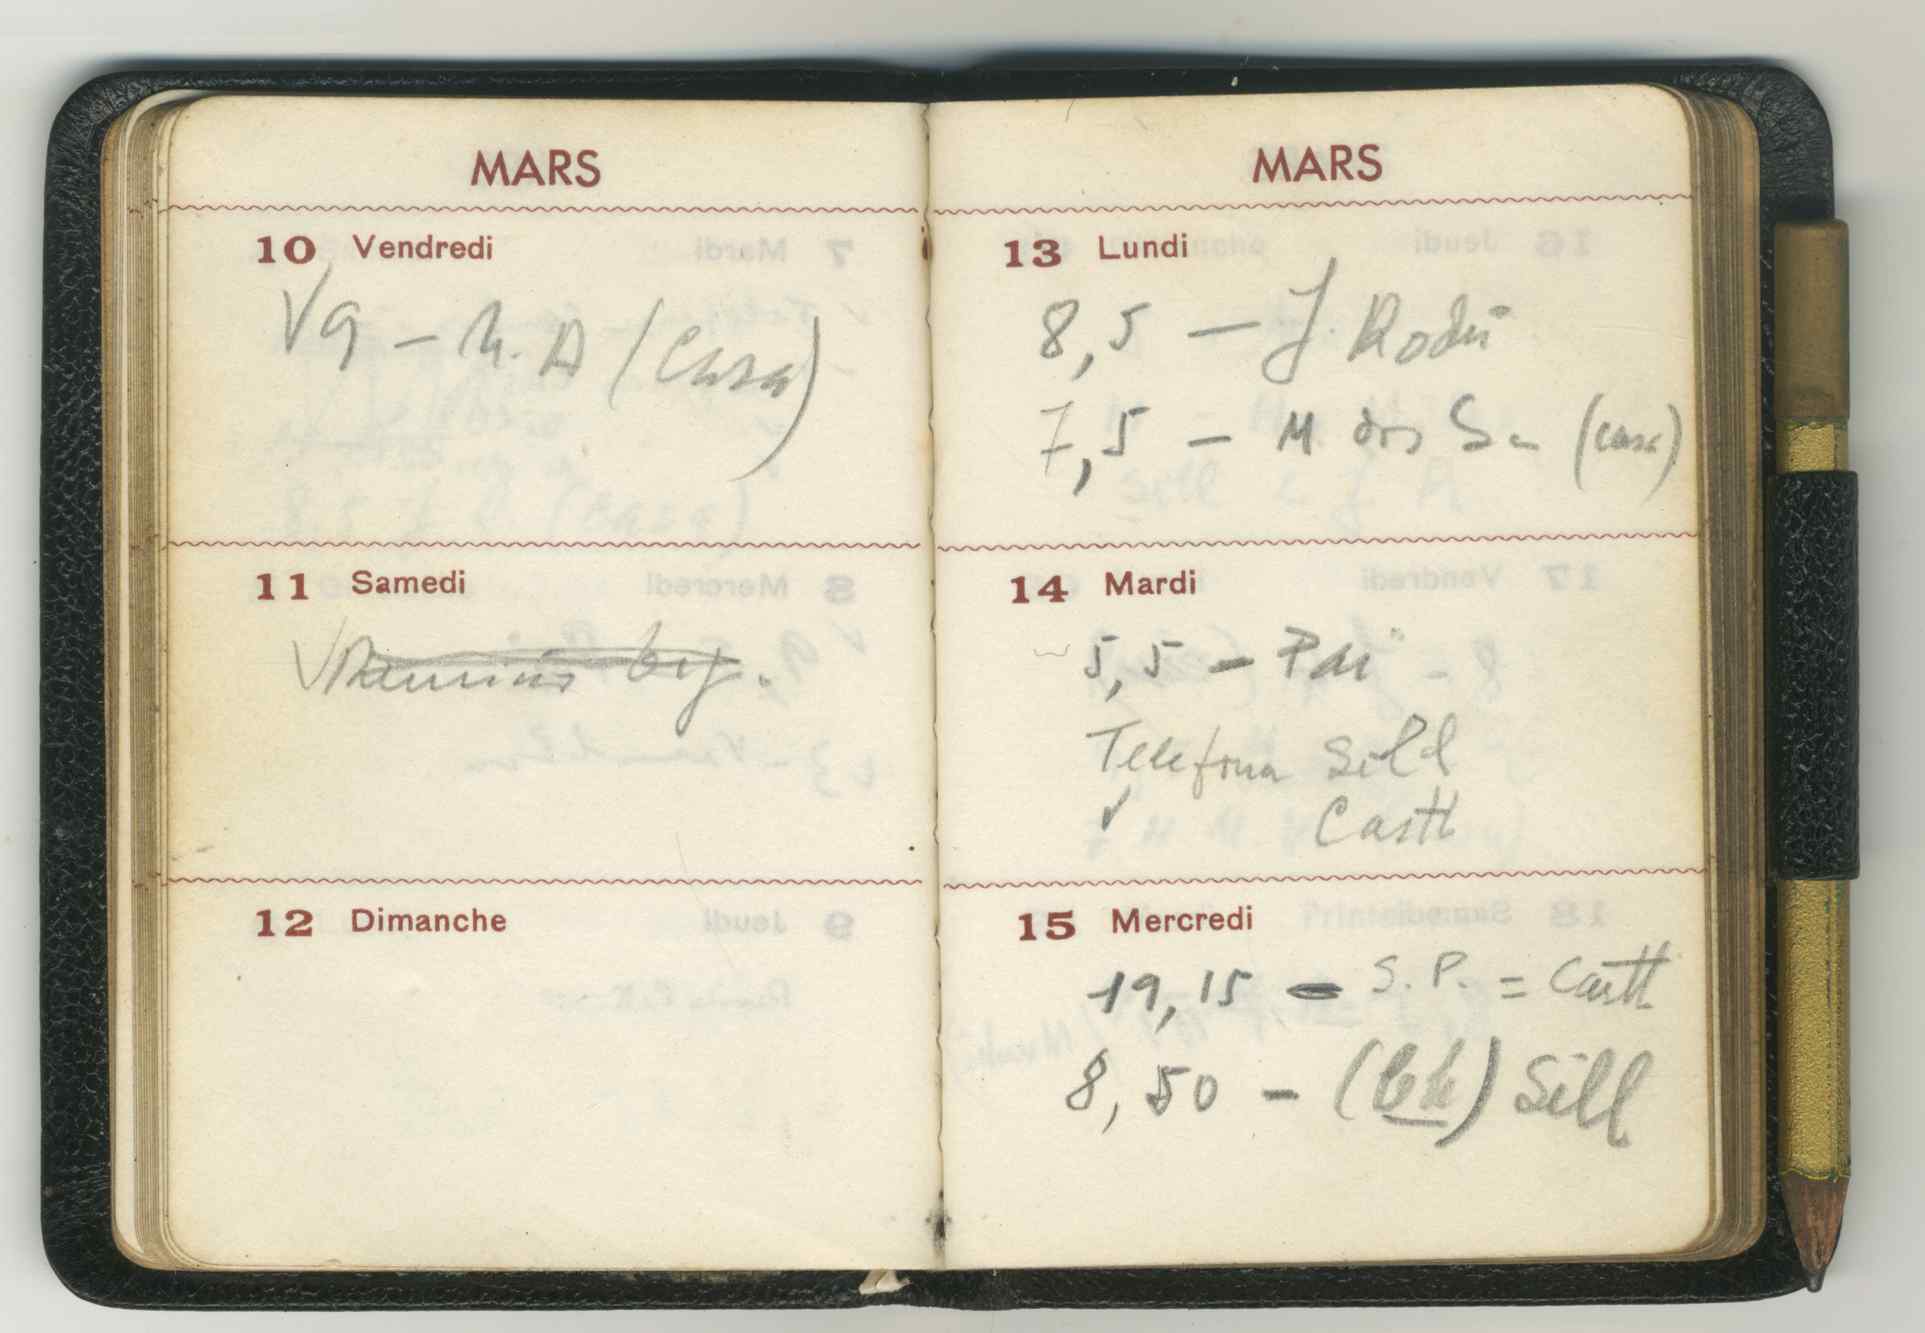 MARS
10 Vendredi
√ 9 – h. A (Casa)
11 Samedi
12 Dimanche
MARS
13 Lundi
8,5 — J.
7,5 – M dos (casa)
14 Mardi
5,5 – Pai
Telefona Sill
✓ Castl
15 Mercredi
19,15 – S. P. = Castl
8,50 – Sill